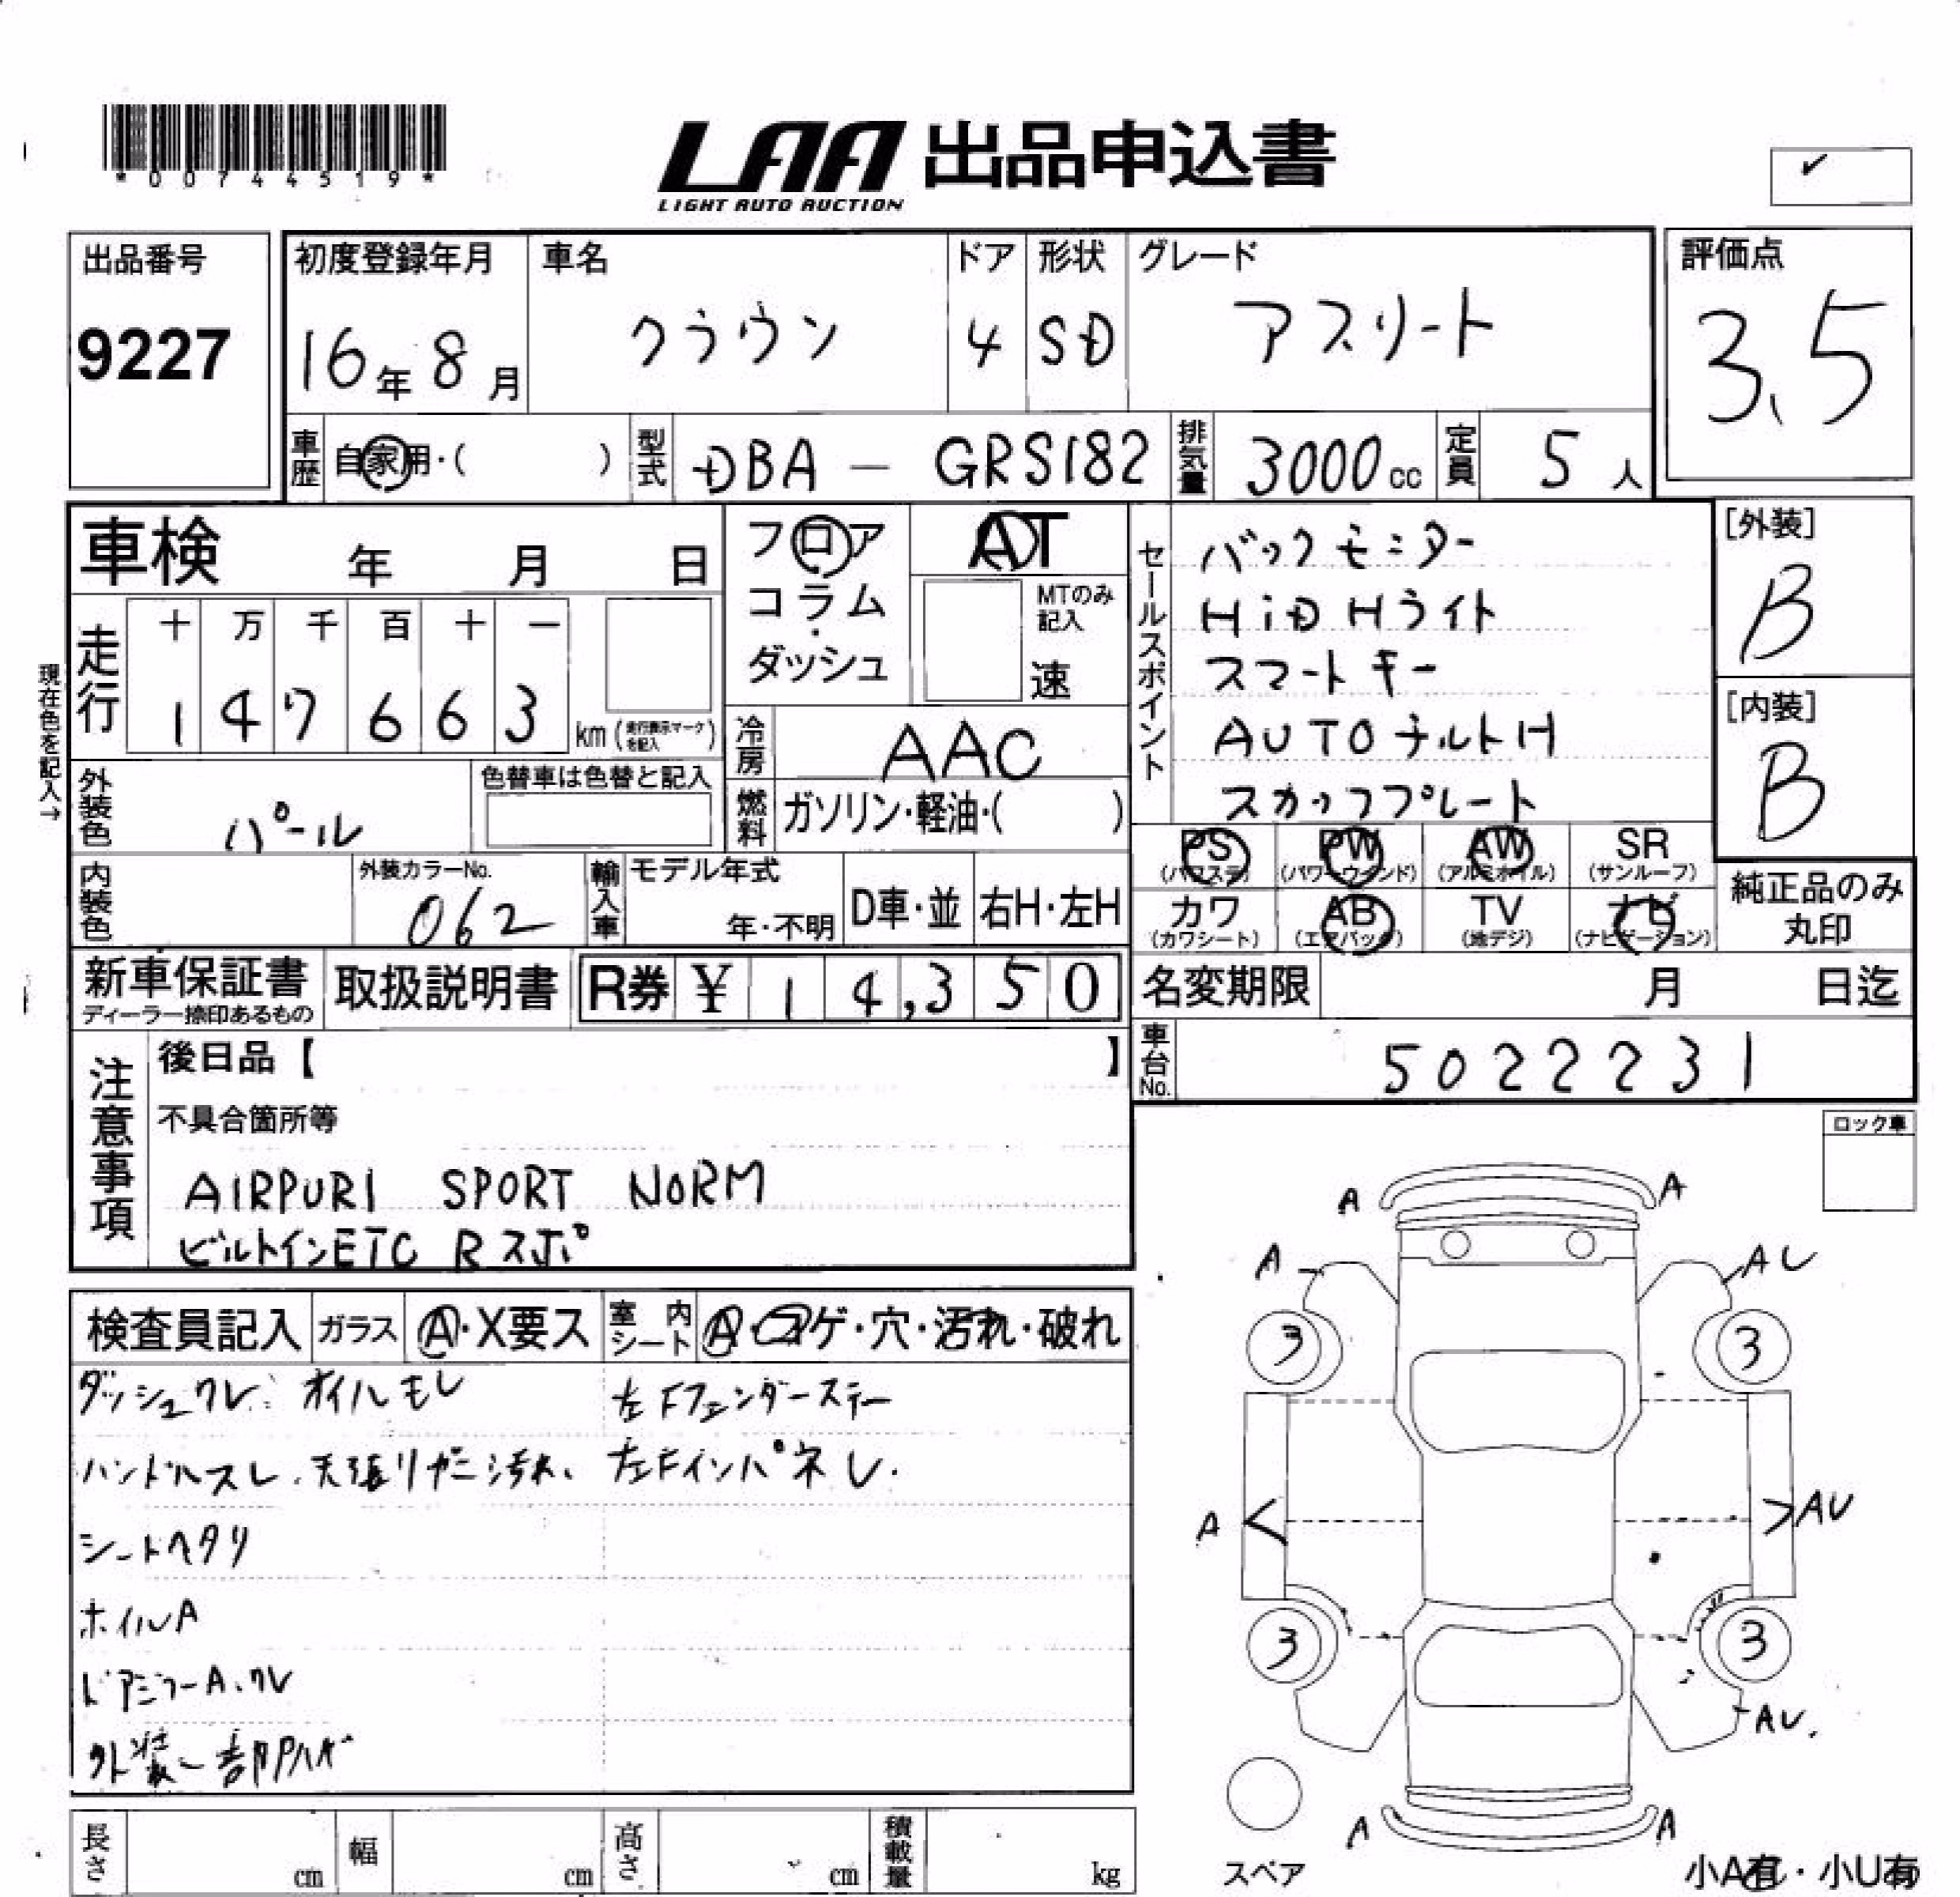 *00744519*
LAA 出品申込書
LIGHT AUTO AUCTION
✓
出品番号
9227
初度登録年月
16年8月
車名
クラウン
ドア
4
形状
SD
グレード
アスリート
評価点
3.5
車歴 自家用・( )
型式 DBA - GRS182
排気量 3000cc
定員 5人
車検 年 月 日
フロア
コラム
・
ダッシュ
AT
MTのみ記入
速
走行
十 万 千 百 十 一
1 4 7 6 6 3
km(走行表示マークを記入)
現在色を記入→
冷房 AAC
燃料 ガソリン・軽油・( )
外装色 パール
色替車は色替と記入
内装色
外装カラーNo.
062
輸入車
モデル年式
年・不明
D車・並
右H・左H
セールスポイント
バックモニター
HiD Hライト
スマートキー
AUTOチルトH
スカッフプレート
[外装]
B
[内装]
B
PS
(パワステ)
PW
(パワーウインド)
AW
(アルミホイル)
SR
(サンルーフ)
カワ
(カワシート)
AB
(エアバック)
TV
(地デジ)
ナビ
(ナビゲーション)
純正品のみ
丸印
新車保証書
ディーラー捺印あるもの
取扱説明書
R券 ¥ 14,350
名変期限 月 日迄
車台No. 5022231
注意事項
後日品【 】
不具合箇所等
AIRPURI SPORT NORM
ビルトインETC Rスポ
ロック車
検査員記入
ガラス A・X要ス
室内シート A・コゲ・穴・汚れ・破れ
ダッシュワレ オイルモレ
左Fフェンダーステー
ハンドルスレ、天張りヤニ汚れ、
左FインパネレU.
シートヘタリ
ホイルA
ドアミラーA、ワレ
外装一部Pハゲ
A A
A AU
3 3
A AU
3 3
AU.
A A
スペア
小A有・小U有
長さ cm
幅 cm
高さ cm
積載量 kg